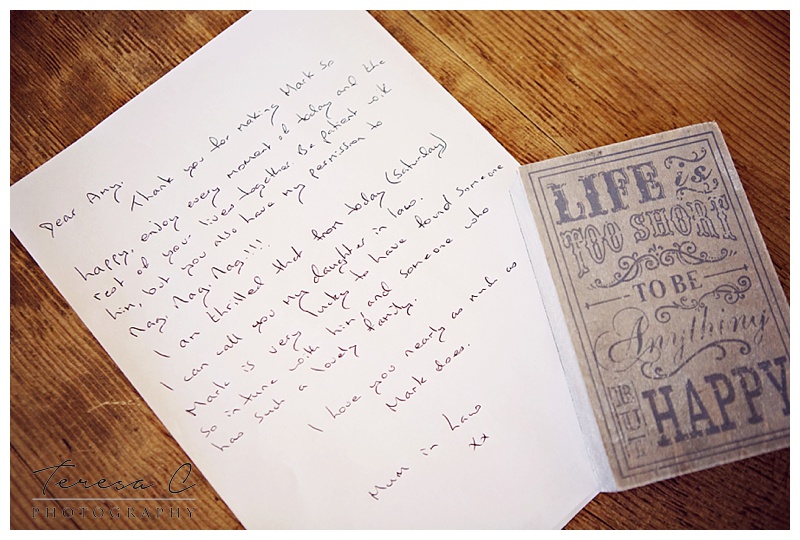 Dear Amy,
Thank you for making Mark so
happy, enjoy every moment of today and the
rest of your lives together. Be patient with
him, but you also have my permission to
Nag, Nag, Nag!!!!
I am thrilled that from today (Saturday)
I can call you my daughter in law.
Mark is very lucky to have found someone
so in tune with him, and someone who
has such a lovely family.
I love you nearly as much as
Mark does.
Mum in Law
xx
LIFE is
TOO SHORT
TO BE
Anything
BUT HAPPY
Teresa C
PHOTOGRAPHY